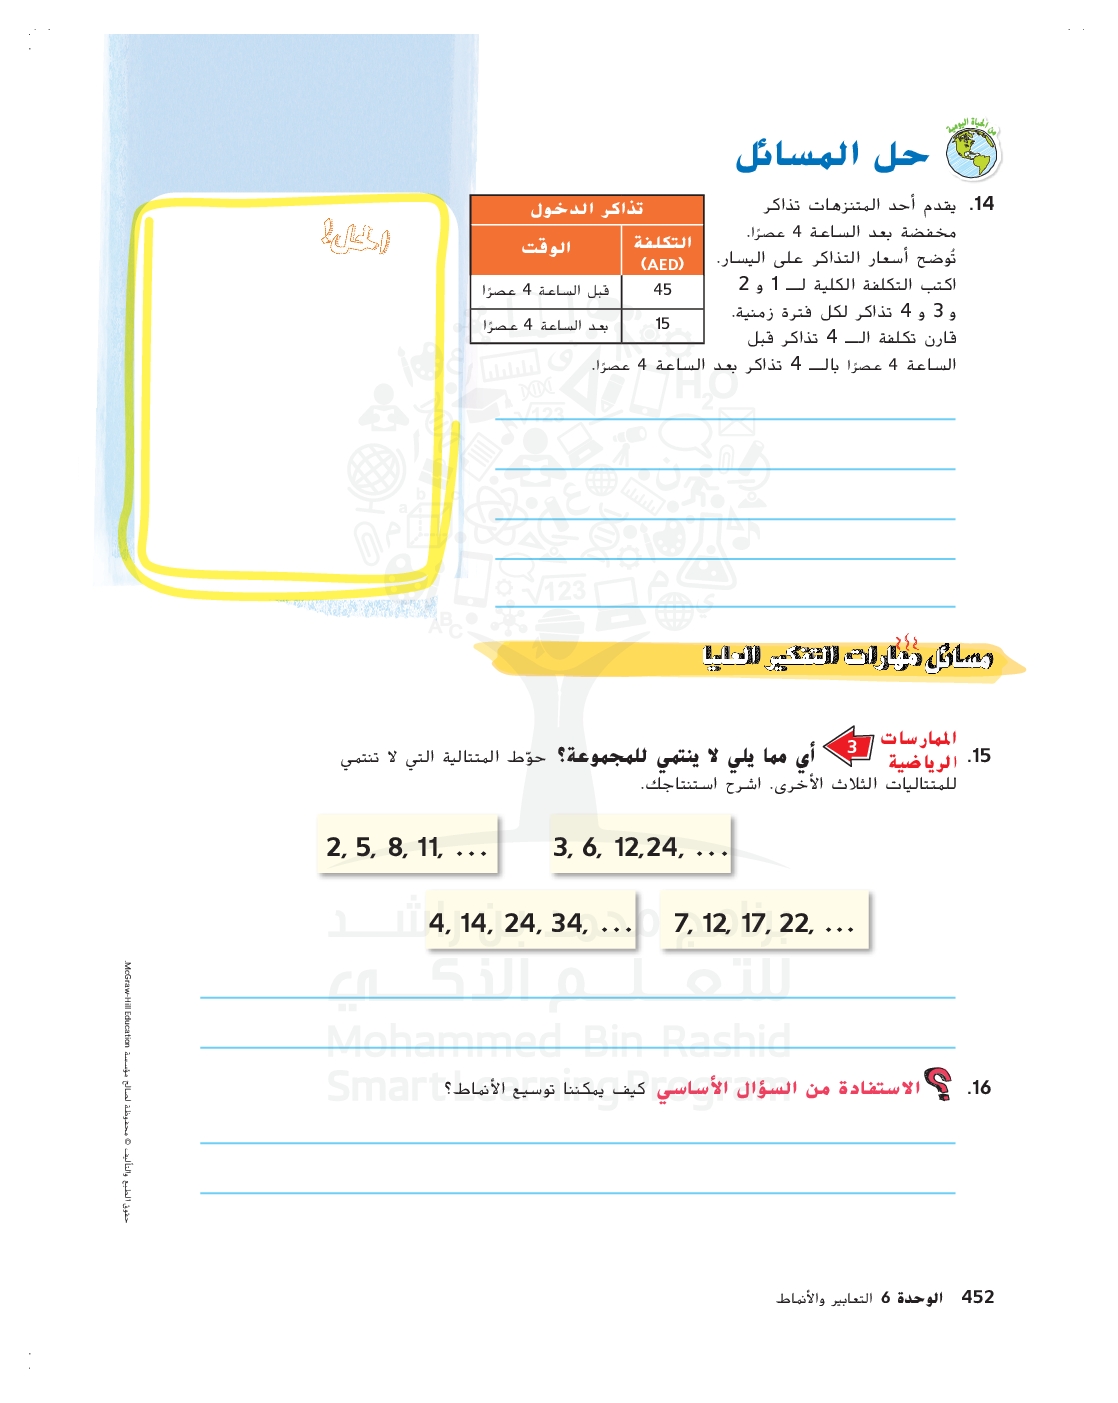 من الحياة اليومية
حل المسائل
14. يقدم أحد المتنزهات تذاكر
مخفضة بعد الساعة 4 عصرًا.
تُوضح أسعار التذاكر على اليسار.
اكتب التكلفة الكلية لـ 1 و 2
و 3 و 4 تذاكر لكل فترة زمنية.
قارن تكلفة الـ 4 تذاكر قبل
الساعة 4 عصرًا بالـ 4 تذاكر بعد الساعة 4 عصرًا.
تذاكر الدخول
التكلفة (AED) الوقت
45 قبل الساعة 4 عصرًا
15 بعد الساعة 4 عصرًا
مسائل مهارات التفكير العليا
15. الممارسات الرياضية 3 أي مما يلي لا ينتمي للمجموعة؟ حوّط المتتالية التي لا تنتمي
للمتتاليات الثلاث الأخرى. اشرح استنتاجك.
2, 5, 8, 11, ...
3, 6, 12,24, ...
4, 14, 24, 34, ...
7, 12, 17, 22, ...
برنامج محمد بن راشد
للتعلم الذكي
Mohammed Bin Rashid
Smart Learning Program
16. الاستفادة من السؤال الأساسي كيف يمكننا توسيع الأنماط؟
حقوق الطبع والتأليف © محفوظة لصالح مؤسسة McGraw-Hill Education.
452 الوحدة 6 التعابير والأنماط